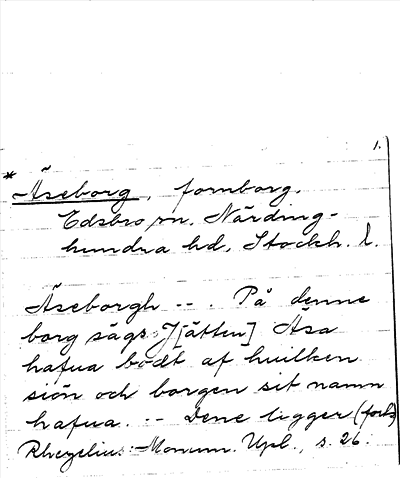 1.
* Åseborg, fornborg.
Edsbro sn. Närding-
hundra hd, Stockh. l.
Åseborgh --. På denne
borg sägs J[ätten] Åsa
hafua bodt af huilken
siön och borgen sit namn
hafua. -- Dene ligger (forts)
Rhezelius: Monum. Upl., s. 26.